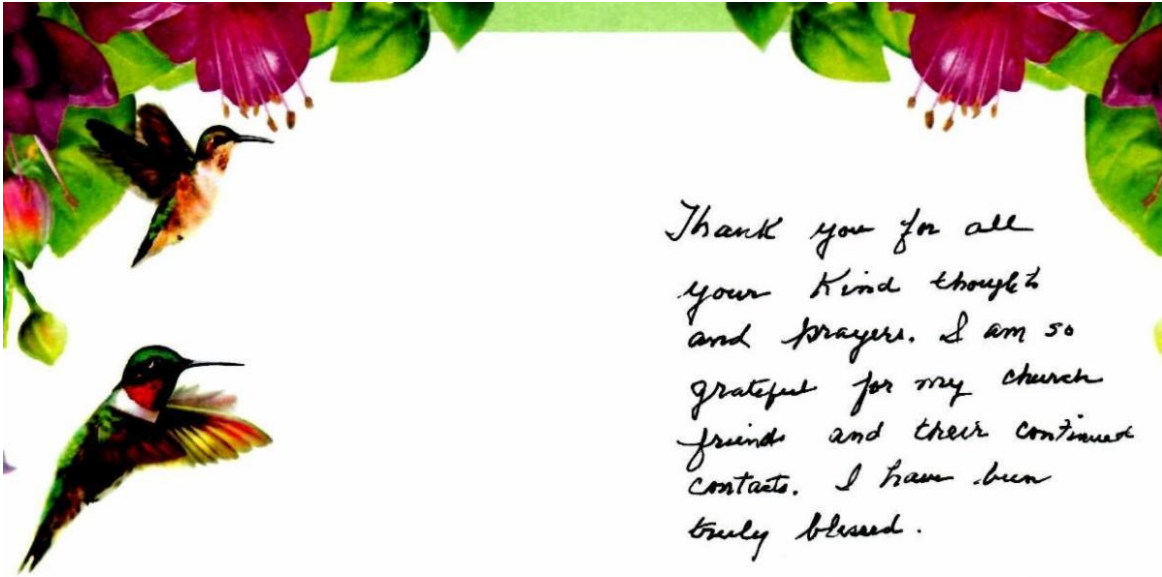 Thank you for all
your kind thoughts
and prayers. I am so
grateful for my church
friends and their continued
contacts. I have been
truly blessed.